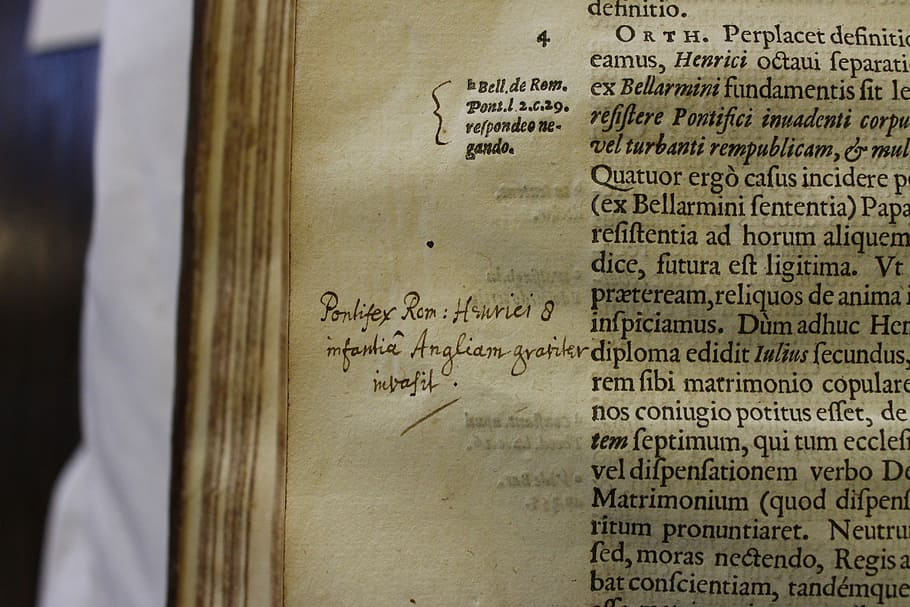 4
h Bell. de Rom.
Pont. l. 2. c. 29.
respondeo ne-
gando.
Pontifex Rom: Henrici 8
infantiâ Angliam graviter
invasit.
definitio.
ORTH. Perplacet definitio
eamus, Henrici octaui ſeparati
ex Bellarmini fundamentis ſit le
reſiſtere Pontifici inuadenti corpu
vel turbanti rempublicam, & mul
Quatuor ergò caſus incidere p
(ex Bellarmini ſententia) Papa
reſiſtentia ad horum aliquem
dice, futura eſt ligitima. Vt
præteream, reliquos de anima i
inſpiciamus. Dùm adhuc Hen
diploma edidit Iulius ſecundus,
rem ſibi matrimonio copulare
nos coniugio potitus eſſet, de
tem ſeptimum, qui tum eccleſi
vel diſpenſationem verbo De
Matrimonium (quod diſpenſ
ritum pronuntiaret. Neutru
ſed, moras nectendo, Regis a
bat conſcientiam, tandémque